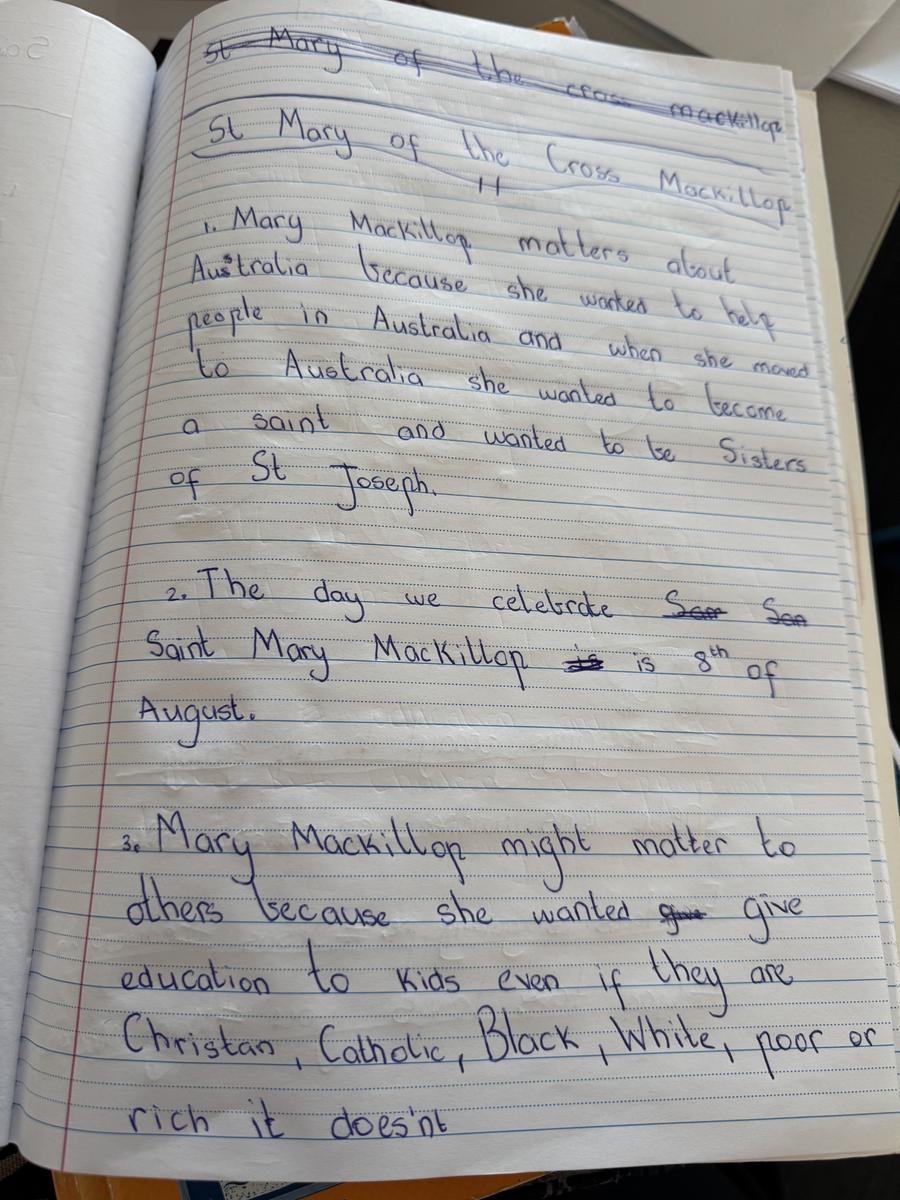 St Mary of the cross mackillop
St Mary of the Cross Mackillop
1. Mary Mackillop matters about
Australia because she wanted to help
people in Australia and when she moved
to Australia she wanted to become
a saint and wanted to be Sisters
of St Joseph.
2. The day we celebrate San San
Saint Mary Mackillop is is 8th of
August.
3. Mary Mackillop might matter to
others because she wanted give give
education to kids even if they are
Christan, Catholic, Black, White, poor or
rich it does'nt